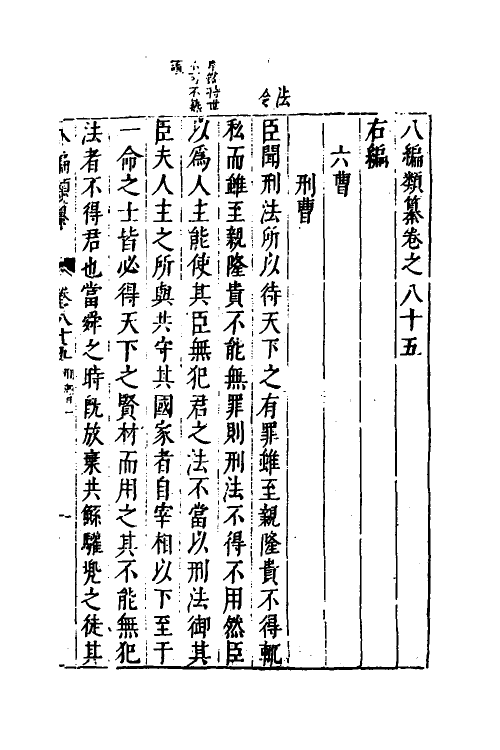 八編類纂卷之八十五
右編
六曹
刑曹
法令
臣聞刑法所以待天下之有罪雖至親隆貴不得輒
私而雖至親隆貴不能無罪則刑法不得不用然臣
以爲人主能使其臣無犯君之法不當以刑法御其
臣夫人主之所與共守其國家者自宰相以下至于
一命之士皆必得天下之賢材而用之其不能無犯
法者不得君也當舜之時既放棄共鯀驩兜之徒其
八編類纂 卷八十五 刑曹 一